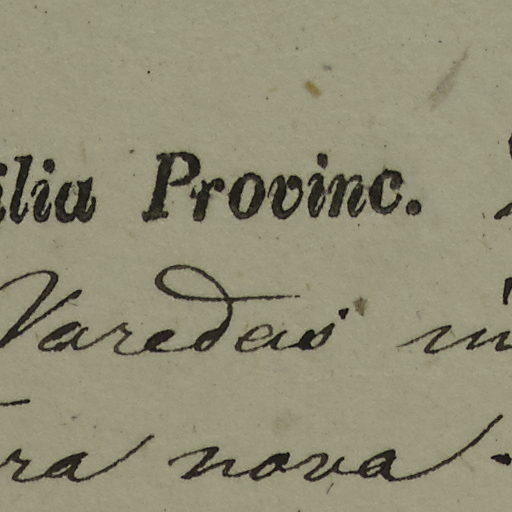 ilia Provinc.
Varedas in
ra nova